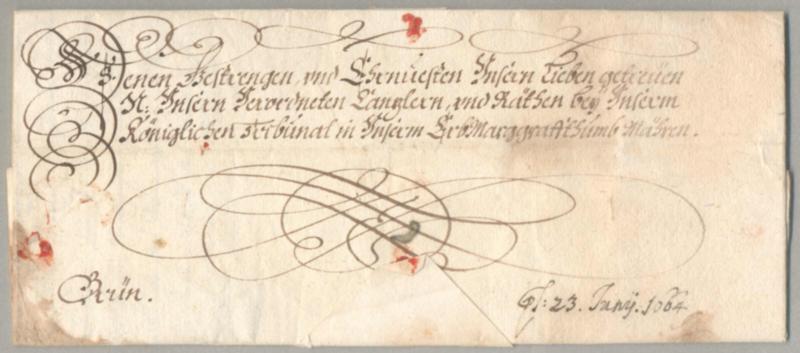 Denen Gestrengen, vnd Ehrnuesten Vnsern Lieben getreüen
N: Vnsern Verordneten Canzlern, vnd Räthen beÿ Vnserm
Königlichen Tribunal in Vnserm ErbMarggraffthumb Mähren.
Brün.
23. Junÿ. 1664